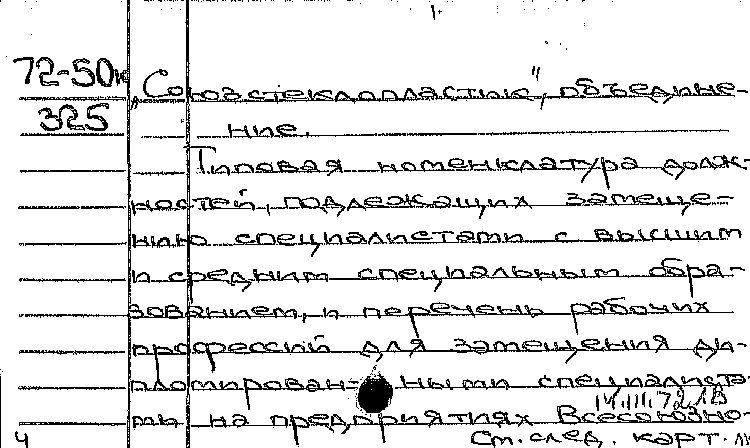 72-50к „Союзстеклопластик", объедине-
325 ние.
Типовая номенклатура долж-
ностей, подлежащих замеще-
нию специалистами с высшим
и средним специальным обра-
зованием, и перечень рабочих
профессий для замещения ди-
пломирован- ными специалиста-
ми на предприятиях Всесоюзно-
14.III.72 1В
См. след. карт.